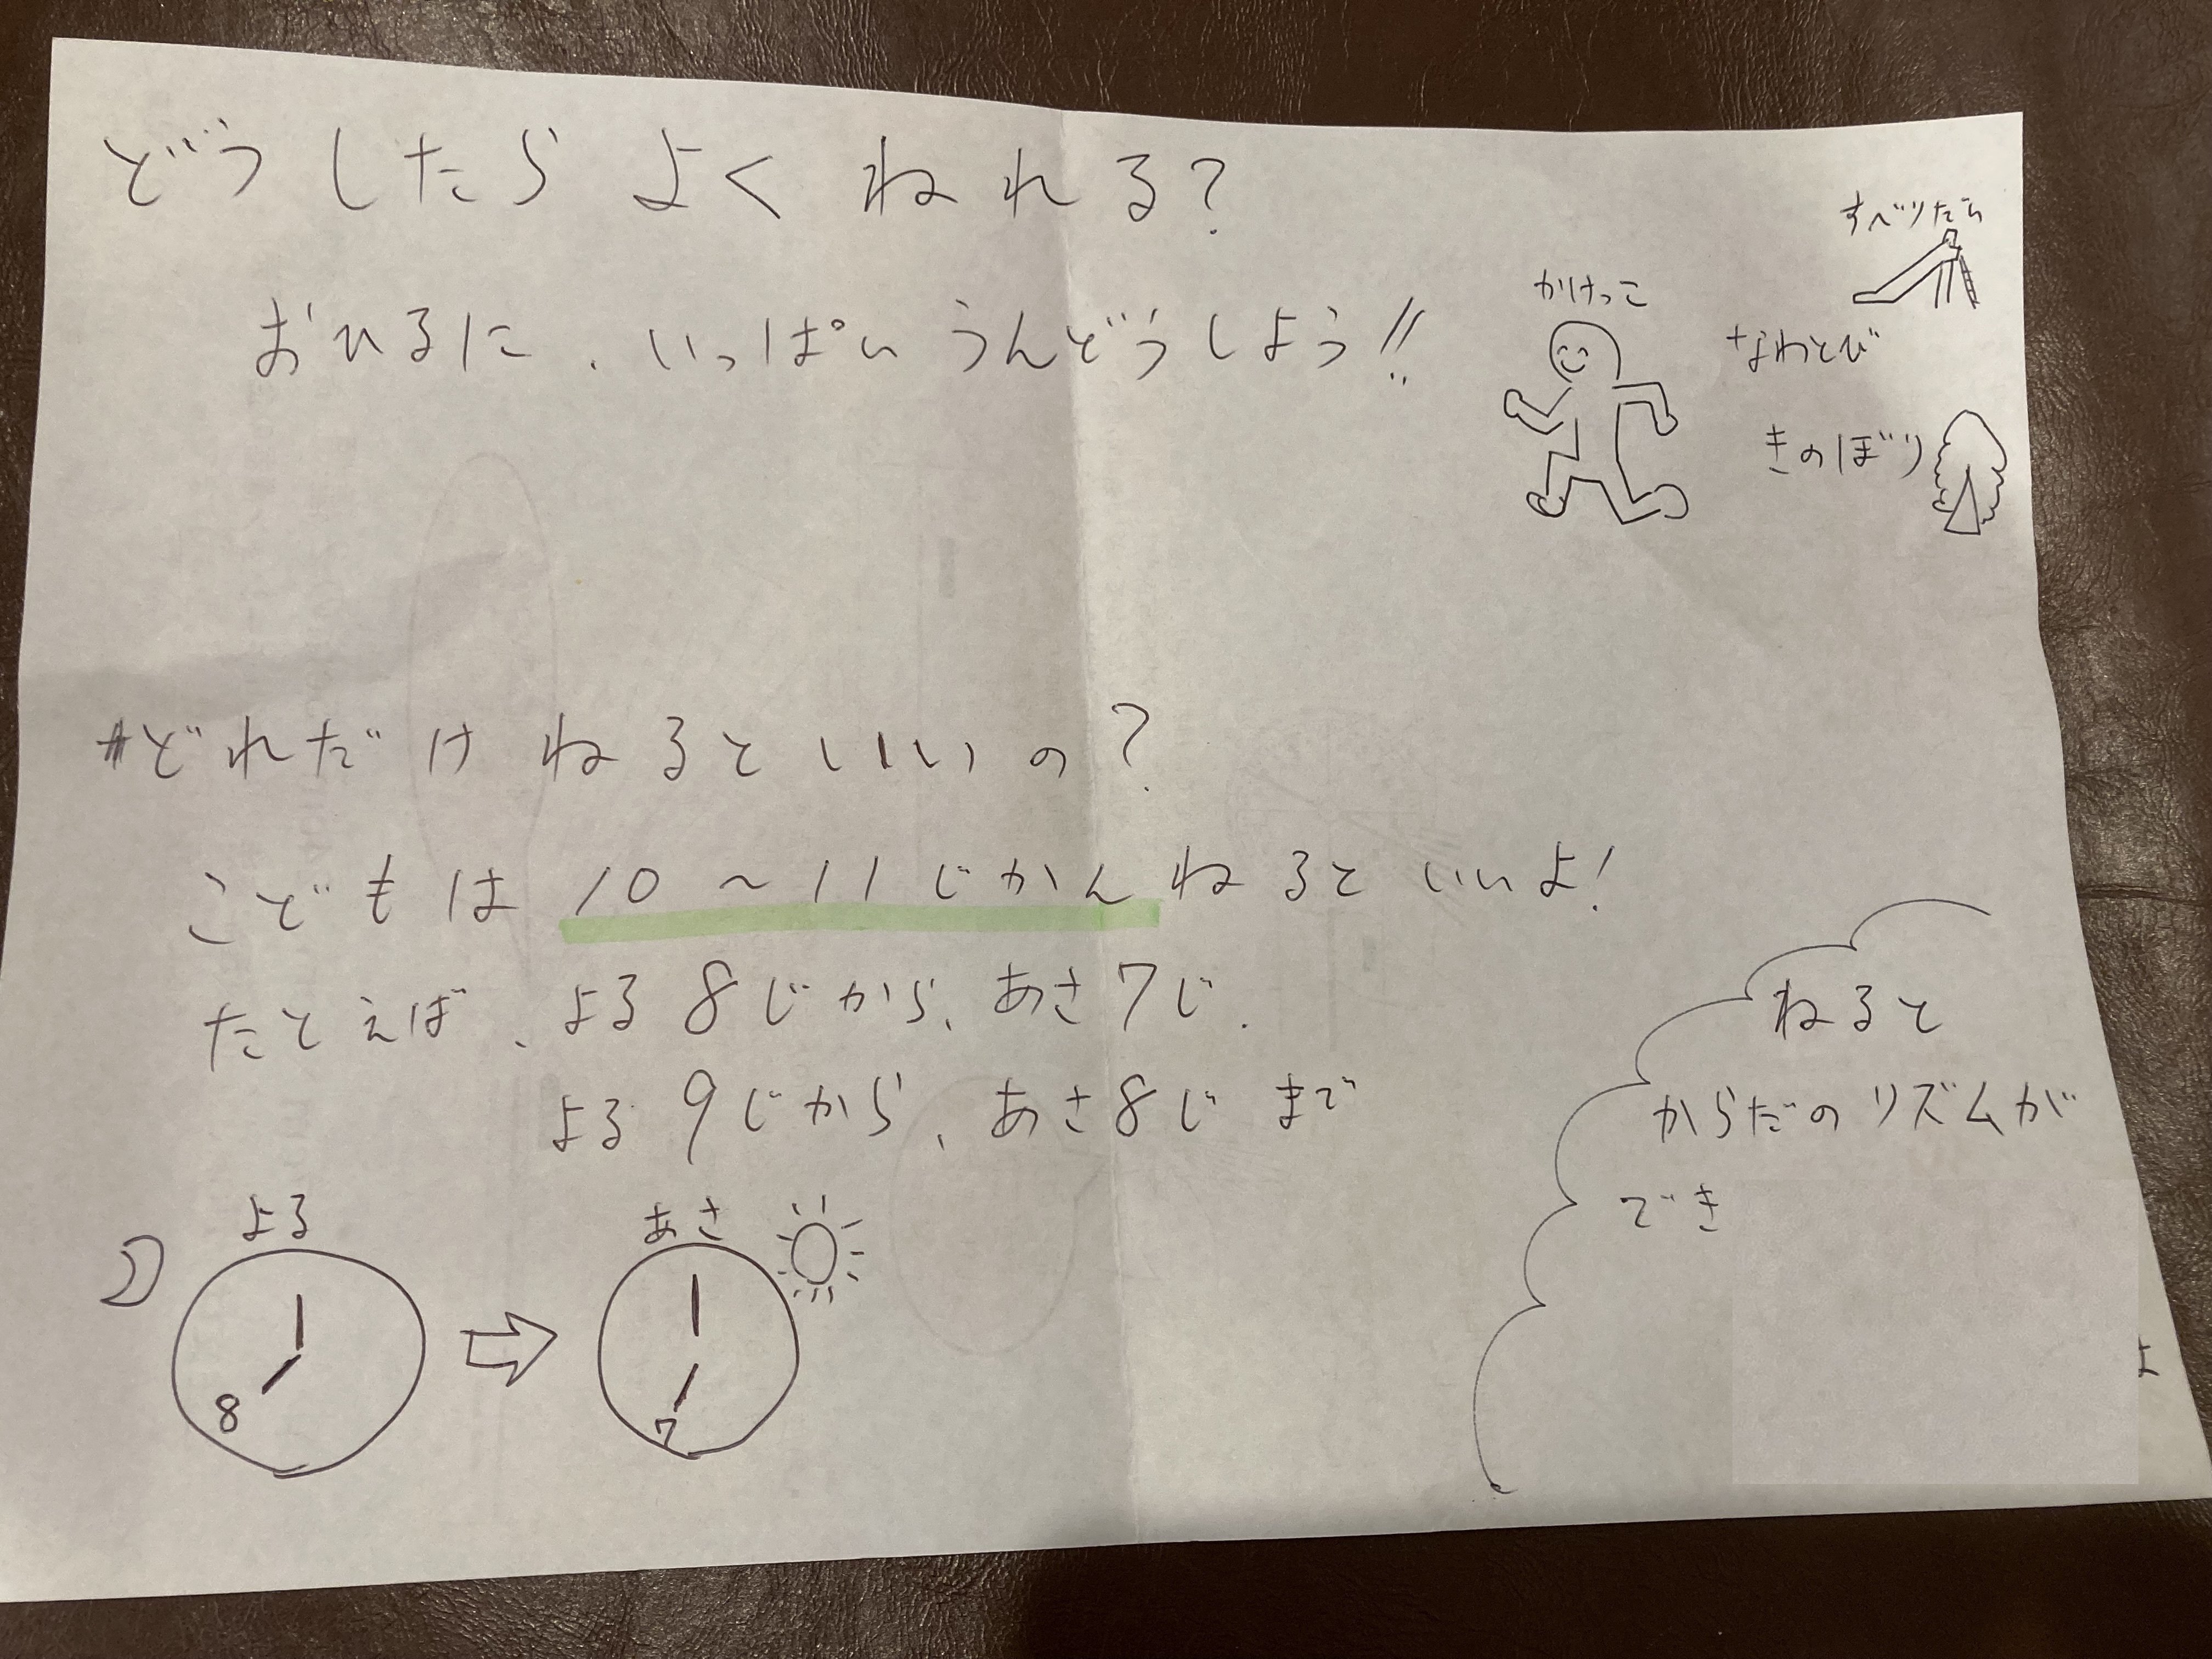 どうしたらよくねれる?
おひるに、いっぱいうんどうしよう!!
かけっこ
すべりだい
なわとび
きのぼり
どれだけねるといいの?
こどもは10～11じかんねるといいよ!
たとえば、よる8じから、あさ7じ.
よる9じから、あさ8じまで
よる
8
あさ
7
ねると
からだのリズムが
でき
よ